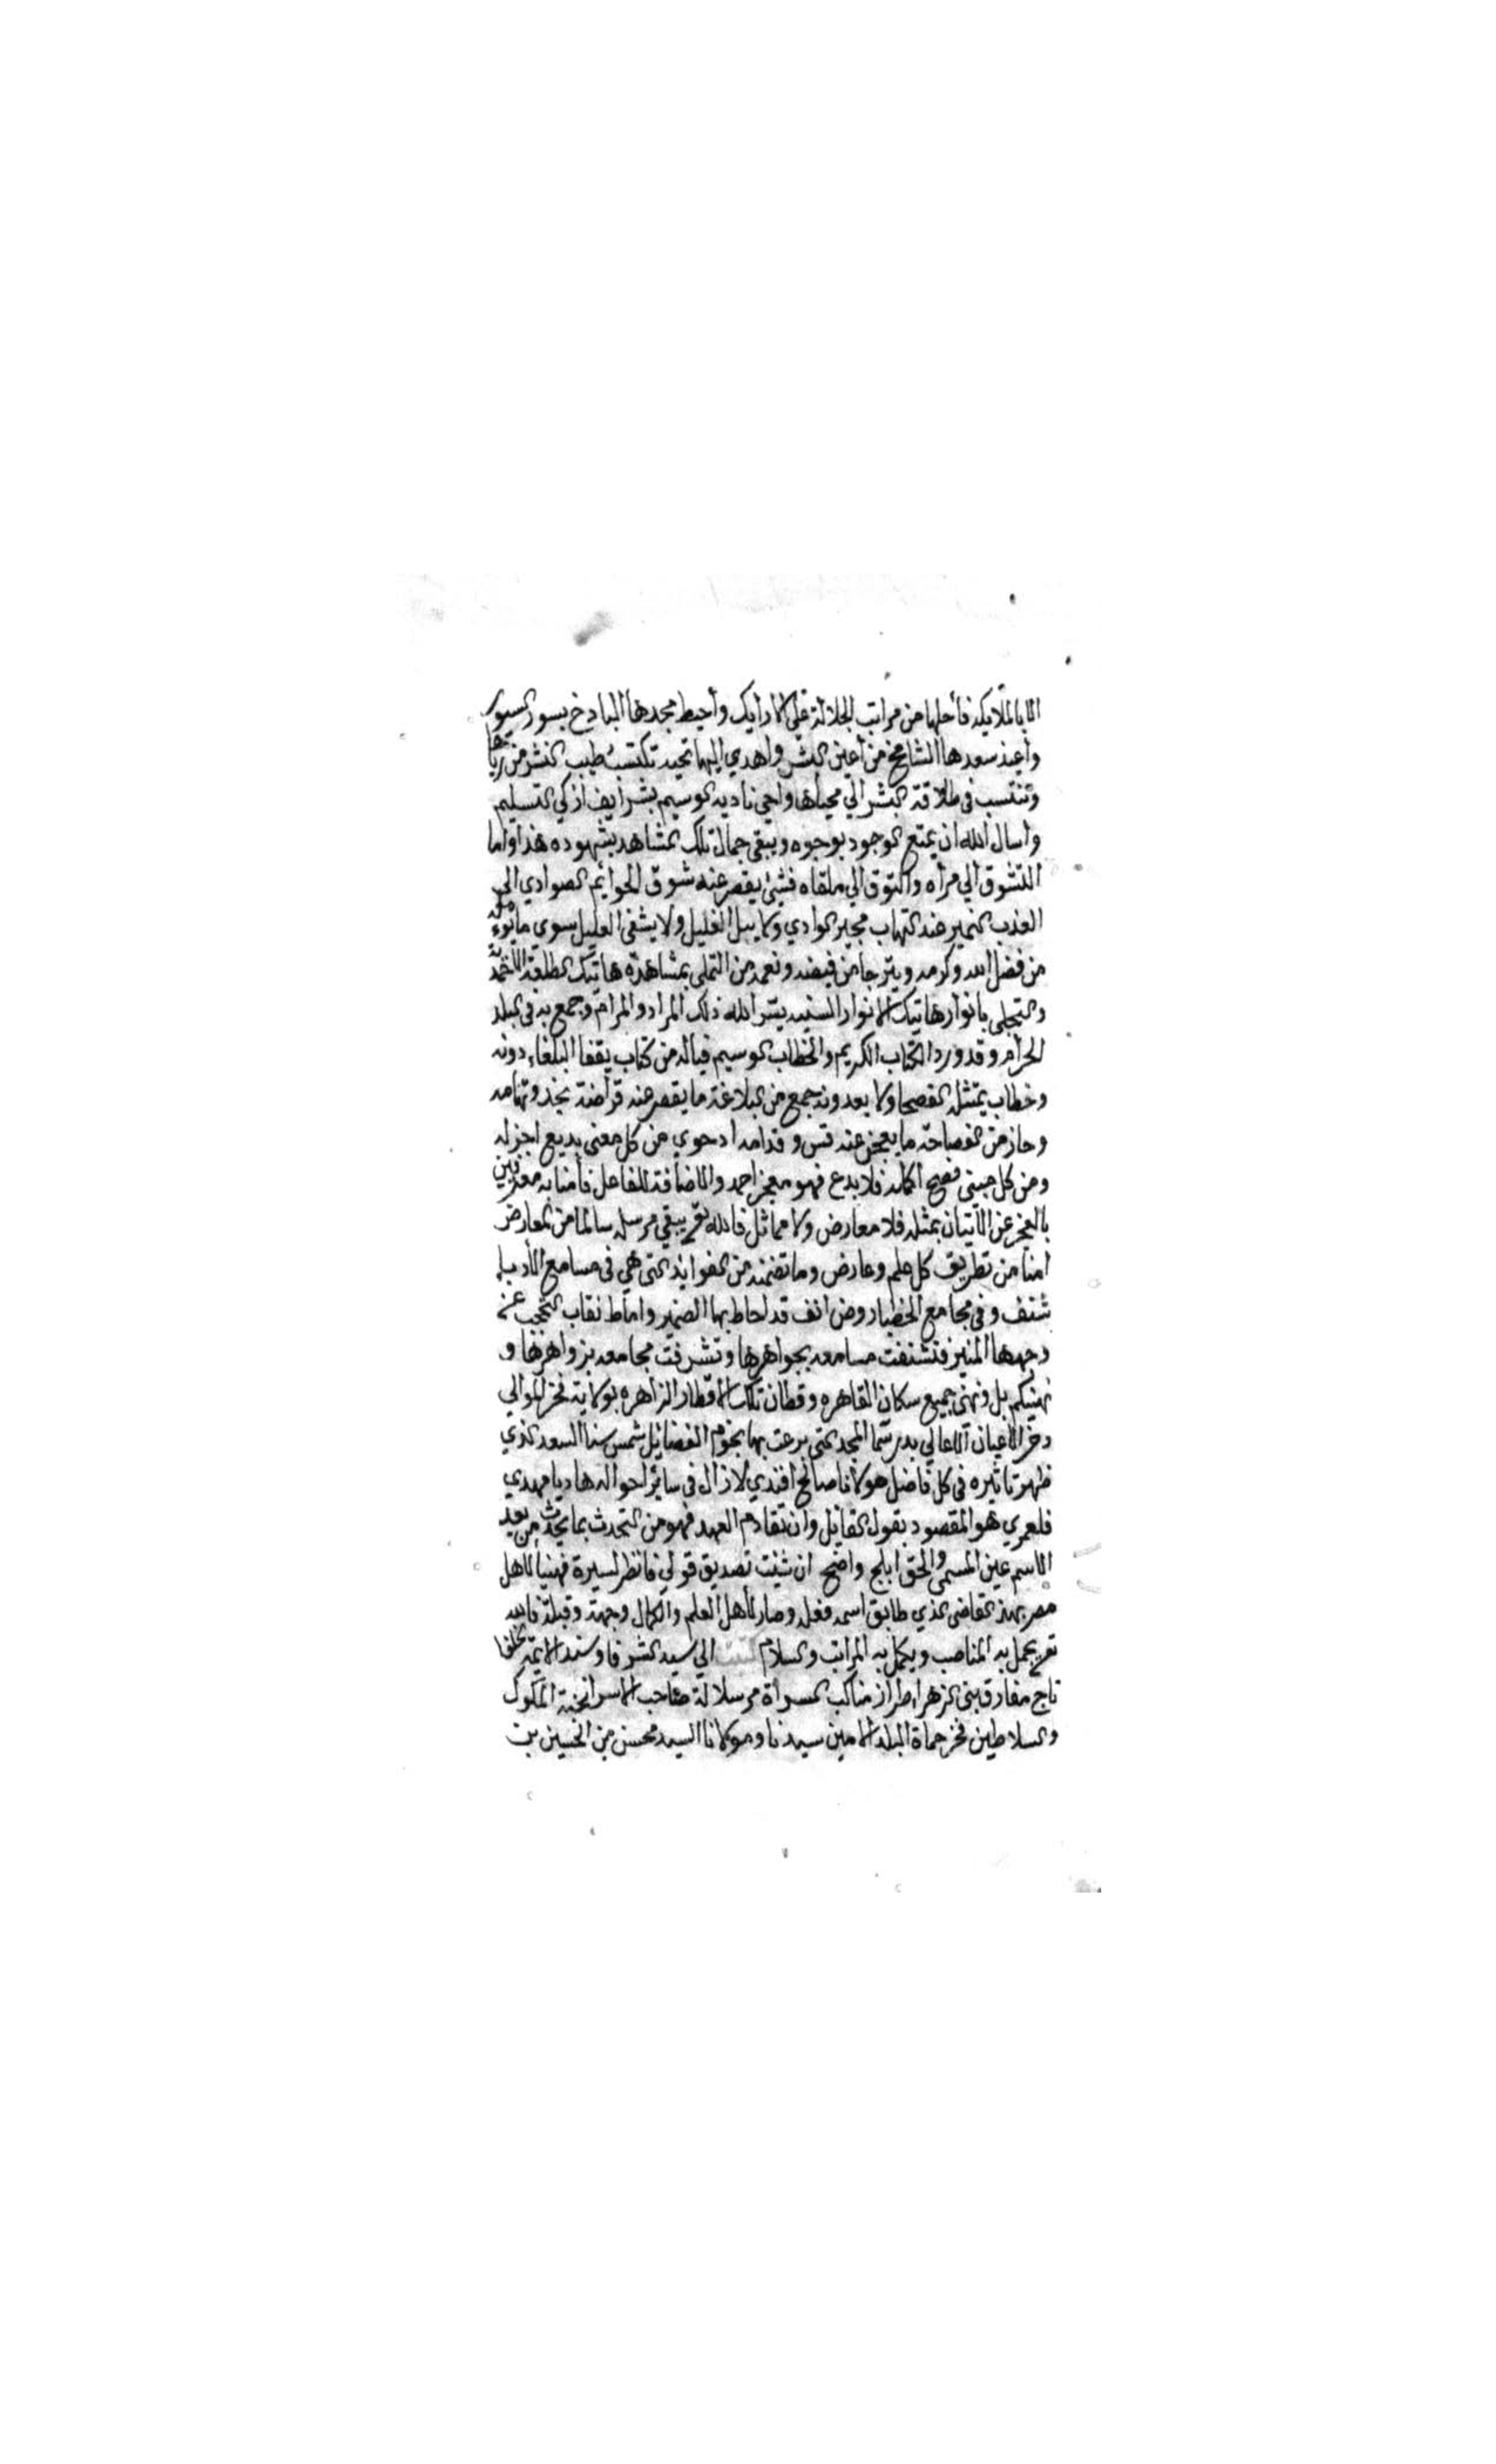 الا بالملايكه فأحلها من مراتب الجلالة على الارايك وأحيط مجدها الباذخ بسور السور
وأعيذ سعدها الشامخ من أعين البشر واهدي اليها تحيه تكتسب طيب النشر من رياها
وتنتسب في طلاقة البشر الي محياها واحي ناديه الوسيم بشرايف ازكي التسليم
واسال الله ان يمتع الوجود بوجوه ويبقي جمال تلك المشاهد بشهوده هذا واما
التشوق الي مرأه والتوق الي ملقاه فشئ يقصر عنه شوق الحوايم الصوادي الي
العذب النمير عند التهاب هجير الوادي ولا يبل الغليل ولا يشفي العليل سوي ما
من فضل الله وكرمه ويترجا من فيضه ونعمه من التملي بمشاهدة هاتيك الطلعة
والتجلي بانوار هاتيك الانوار السنيه يسر الله ذلك المراد والمرام وجمع به في البلد
الحرام وقد ورد الكتاب الكريم والخطاب الوسيم فياله من كتاب يقفا البلغاء دونه
وخطاب يتمثله الفصحا ولا يعدونه جمع من البلاغة ما يقصر عنه قراضة نجد وتهامه
وحاز من الفصاحة ما يعجز عنه قس وقدامه ادحوي من كل معنى بديع اجزله
ومن كل فصيح اكمله فلا بدع فهو معجز احمد والاضافة للفاعل فأمنا به معترفين
بالعجز عن الاتيان بمثله فلا معارض ولا مماثل فالله تع يبقي مرسله سالما من المعارض
امنا من تطريق كل علم وعارض وما تضمنه من الفوايد التي هي في مسامع الأدباء
شنف وفي مجامع الخطبا روض انف قد احاط بها الضمير واماط نقاب التحجب عن
وجهها المنير فتشنفت مسامعه بجواهرها وتشرفت مجامعه بزواهرها و
نهنيكم بل ونهني جميع سكان القاهره وقطان تلك الاقطار الزاهره بولاية فخر الموالي
وفخر الاعيان الاعالي بدر سما المجد التي بزغت بها نجوم الفضايل شمس سنا السعد الذي
ظهر تاثيره في كل فاضل مولانا صالح افندي لا زال في ساير احواله هاديا مهدي
فلعمري هو المقصود بقول القايل وان تقادم العهد فهو من التحدث بما يحدث من بعد
الاسم عين المسمى والحق ابلج واضح ان شئت تصديق قولي فانظر لسيرة فهنيأ لاهل
مصر بهذ القاضي الذي طابق اسمه فعله وصار لأهل العلم والكمال وجهة وقبلة فالله
تع يجمل به المناصب ويكمل به المراتب والسلام كتبت الي سيد الشرفا وسند الايمة الخلفا
تاج مفارق بني الزهرا طراز مناكب السراة سلالة صاحب الاسرا نخبة الملوك
والسلاطين فخر حماة البلد الامين سيدنا ومولانا السيد محسن بن الحسين بن